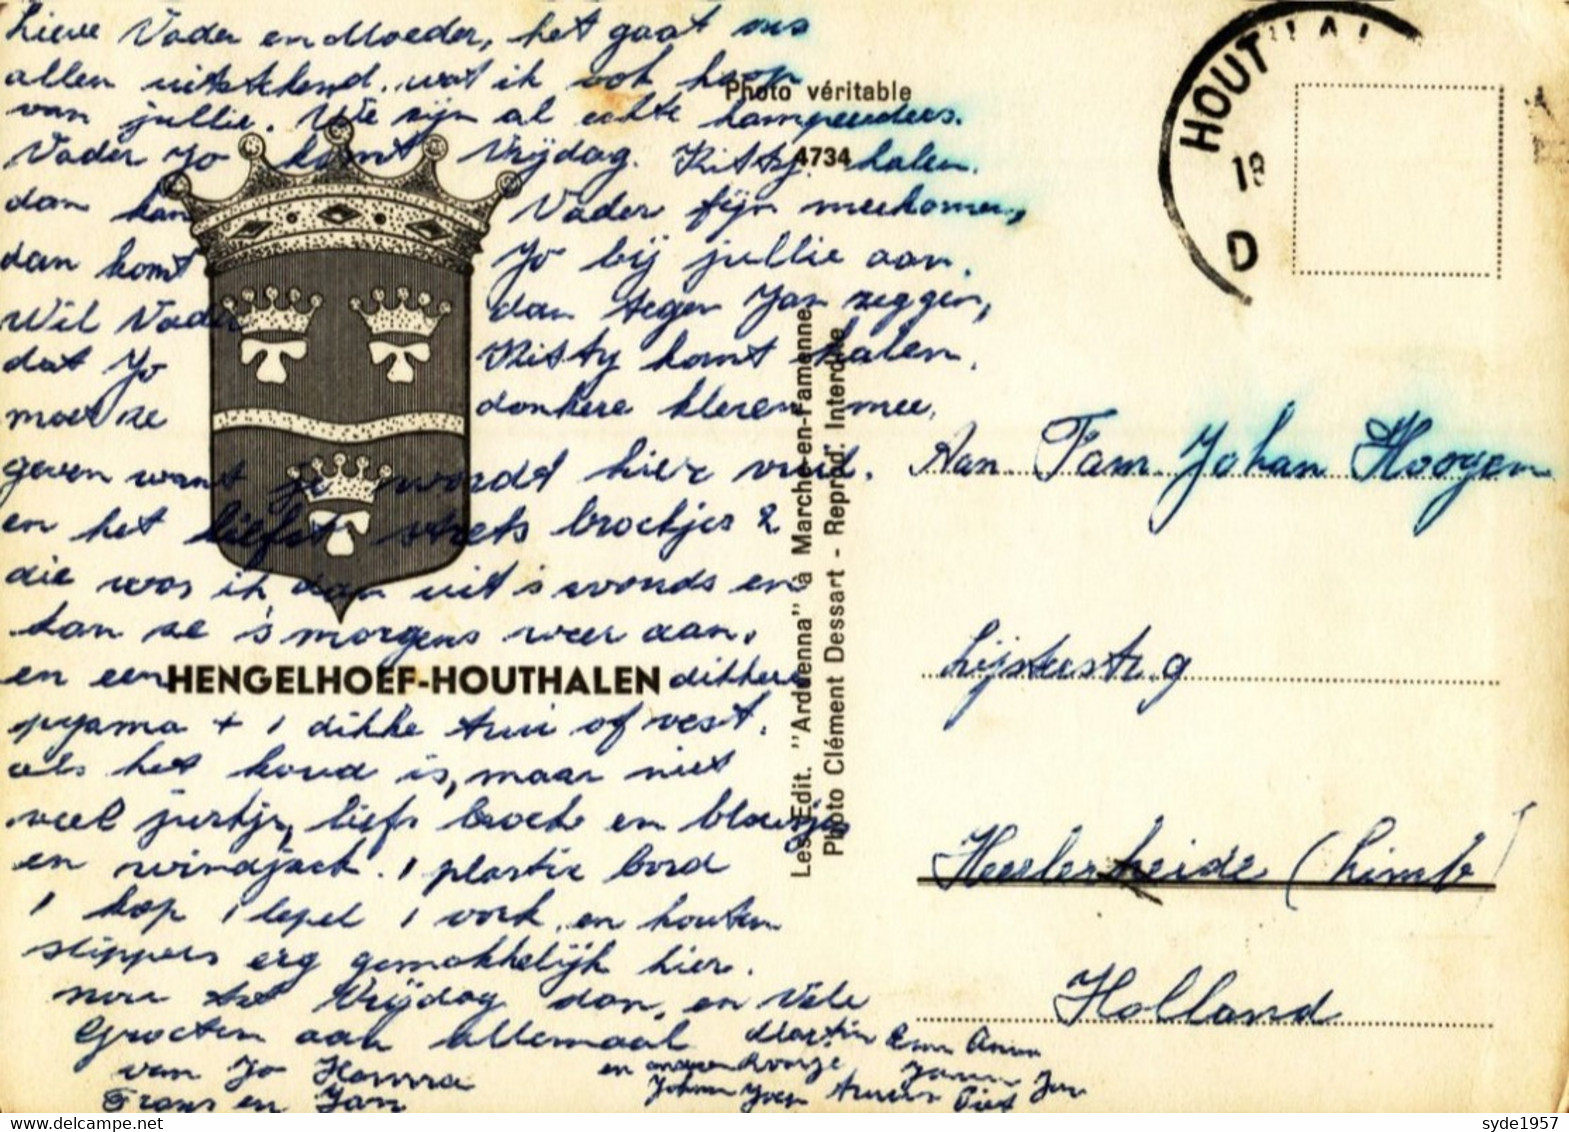 Lieve Vader en Moeder, het gaat ons
allen uitstekend. wat ik ook hoop
van jullie. We zijn al echte kampeerders.
Vader Jo komt Vrijdag. Kitty halen.
dan kan Vader fijn meekomen,
dan komt Jo bij jullie aan.
Wil Vader dan tegen Jan zeggen,
dat Jo Kitty komt halen.
moet ze donkere kleren mee,
geven want je wordt hier vuil.
en het liefst strets broekjes 2
die was ik dan uit 's avonds en
dan ze 's morgens weer aan.
en een dikkere
pyama + 1 dikke trui of vest.
als het koud is, maar niet
veel jurkjes, liefs broek en blousjes
en windjack. 1 plastic bord
1 kop 1 lepel 1 vork, en houten
slippers erg gemakkelijk hier.
nou tot Vrijdag dan, en Vele
Groeten aan allemaal
van Jo Hanna
Frans en Jan
Martin Anna
en
Johan Piet Jan
HENGELHOEF-HOUTHALEN
Photo véritable
4734
Les Edit. "Ardenna" à Marche-en-Famenne
Photo Clément Dessart - Reprod. Interdite
HOUTHAL
19
D
Aan Fam. Johan Hoogen
Lijsterstr. 9
Heelerheide (Limb)
Holland
syde1957